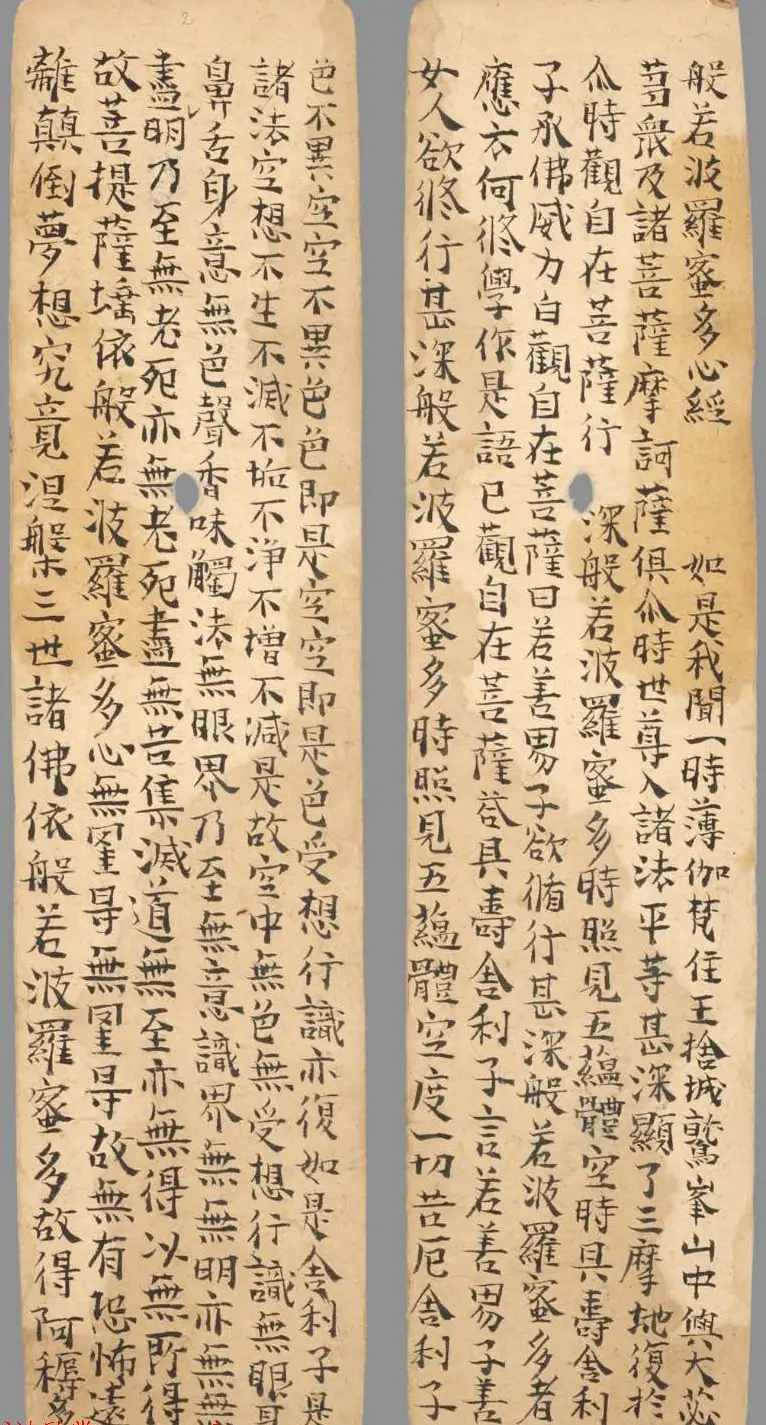 般若波羅蜜多心經 如是我聞一時薄伽梵住王捨城鷲峯山中與大苾
蒭衆及諸菩薩摩訶薩俱尒時世尊入諸法平等甚深顯了三摩地復於
尒時觀自在菩薩行 深般若波羅蜜多時照見五蘊體空時具壽舍利
子承佛威力白觀自在菩薩曰若善男子欲脩行甚深般若波羅蜜多者
應云何修學作是語已觀自在菩薩答具壽舍利子言若善男子善
女人欲修行甚深般若波羅蜜多時照見五蘊體空度一切苦厄舍利子
色不異空空不異色色即是空空即是色受想行識亦復如是舍利子是
諸法空想不生不滅不垢不淨不增不減是故空中無色無受想行識無眼耳
鼻舌身意無色聲香味觸法無眼界乃至無意識界無無明亦無無
盡明乃至無老死亦無老死盡無苦集滅道無至亦無得以無所得
故菩提薩埵依般若波羅蜜多心無罣㝵無罣㝵故無有恐怖遠
離顛倒夢想究竟涅槃三世諸佛依般若波羅蜜多故得阿耨多
2